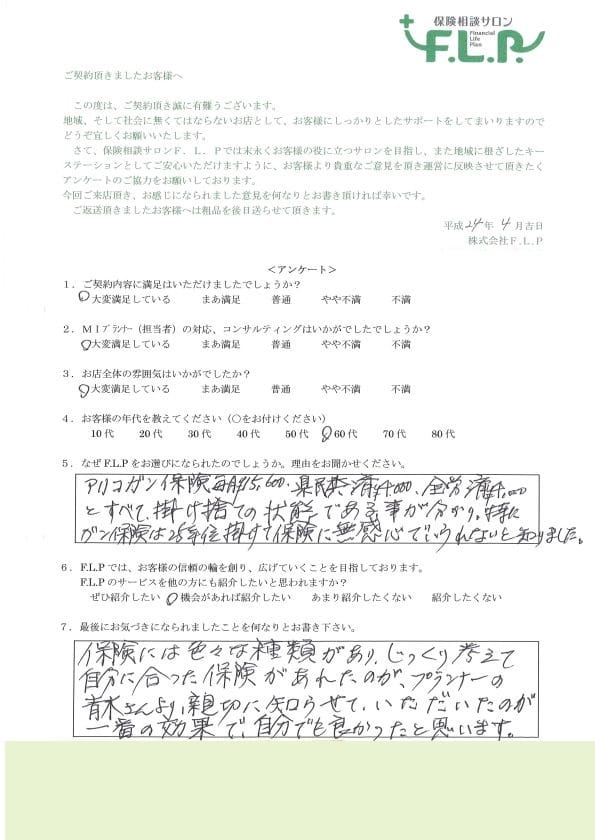 保険相談サロン
F.L.P.
Financial
Life
Plan
ご契約頂きましたお客様へ
この度は、ご契約頂き誠に有難うございます。
地域、そして社会に無くてはならないお店として、お客様にしっかりとしたサポートをしてまいりますので
どうぞ宜しくお願いいたします。
さて、保険相談サロンＦ．Ｌ．Ｐでは末永くお客様の役に立つサロンを目指し、また地域に根ざしたキー
ステーションとしてご安心いただけますように、お客様より貴重なご意見を頂き運営に反映させて頂きたく
アンケートのご協力をお願いしております。
今回ご来店頂き、お感じになられました意見を何なりとお書き頂ければ幸いです。
ご返送頂きましたお客様へは粗品を後日送らせて頂きます。
平成 24 年 4 月吉日
株式会社Ｆ.Ｌ.Ｐ
＜アンケート＞
１．ご契約内容に満足はいただけましたでしょうか？
大変満足している　まあ満足　普通　やや不満　不満
２．ＭＩプランナー（担当者）の対応、コンサルティングはいかがでしたでしょうか？
大変満足している　まあ満足　普通　やや不満　不満
３．お店全体の雰囲気はいかがでしたか？
大変満足している　まあ満足　普通　やや不満　不満
４．お客様の年代を教えてください（○をお付けください）
10代　20代　30代　40代　50代　60代　70代　80代
５．なぜF.L.Pをお選びになられたのでしょうか。理由をお聞かせください。
アリコガン保険毎月¥15,600、県民共済¥4,000、全労済¥4,000
とすべて、掛け捨ての状態である事が分かり、特に
ガン保険は25年位掛けて保険に無感心でいられないと知りました。
６．F.L.Pでは、お客様の信頼の輪を創り、広げていくことを目指しております。
F.L.Pのサービスを他の方にも紹介したいと思われますか？
ぜひ紹介したい　機会があれば紹介したい　あまり紹介したくない　紹介したくない
７．最後にお気づきになられましたことを何なりとお書き下さい。
保険には色々な種類があり、じっくり考えて
自分に合った保険があれたのが、プランナーの
青木さんより、親切に知らせて、いただいたのが
一番の効果で、自分でも良かったと思います。